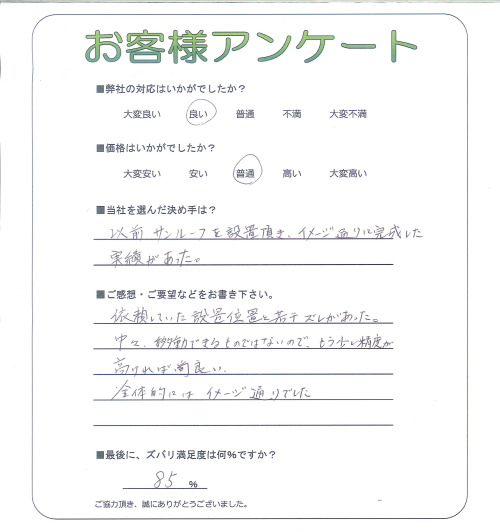 お客様アンケート
■弊社の対応はいかがでしたか？
大変良い 良い 普通 不満 大変不満
■価格はいかがでしたか？
大変安い 安い 普通 高い 大変高い
■当社を選んだ決め手は？
以前 サンルーフを設置頂き、イメージ通りに完成した
実績があった。
■ご感想・ご要望などをお書き下さい。
依頼していた設置位置と若干ズレがあった。
中々、移動できるものではないので、もう少し精度が
高ければ尚良い。
全体的には イメージ通りでした
■最後に、ズバリ満足度は何%ですか？
85 %
ご協力頂き、誠にありがとうございました。